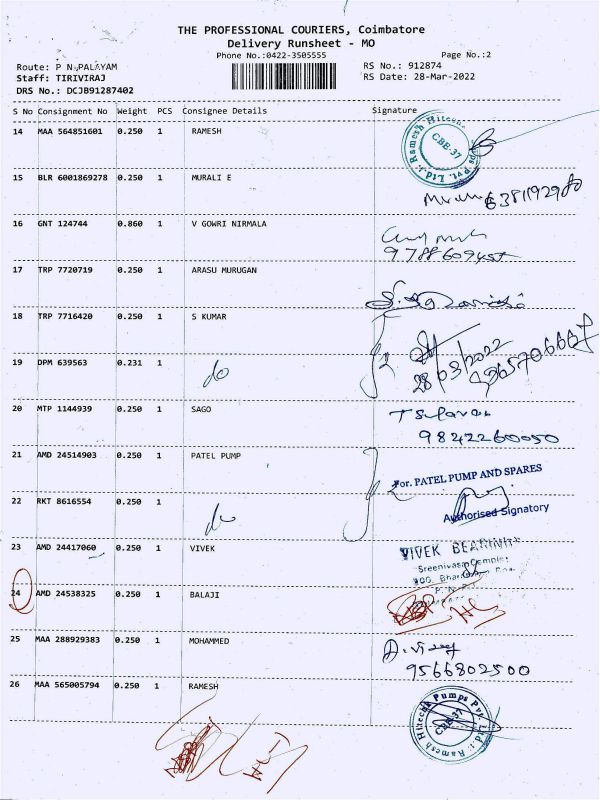 THE PROFESSIONAL COURIERS, Coimbatore
Delivery Runsheet - MO
Phone No.:0422-3505555
Page No.:2
Route: P N PALAYAM
RS No.: 912874
Staff: TIRIVIRAJ
RS Date: 28-Mar-2022
DRS No.: DCJB91287402
S No Consignment No Weight PCS Consignee Details Signature
14 MAA 564851601 0.250 1 RAMESH
Ramesh Hitech Pumps Pvt. Ltd.
CBE-37
15 BLR 6001869278 0.250 1 MURALI E
16 GNT 124744 0.860 1 V GOWRI NIRMALA
17 TRP 7720719 0.250 1 ARASU MURUGAN
18 TRP 7716420 0.250 1 S KUMAR
28/03/2022
19 DPM 639563 0.231 1 do
20 MTP 1144939 0.250 1 SAGO
9842260050
21 AMD 24514903 0.250 1 PATEL PUMP
For. PATEL PUMP AND SPARES
22 RKT 8616554 0.250 1 do
Authorised Signatory
23 AMD 24417060 0.250 1 VIVEK
VIVEK BEARING
24 AMD 24538325 0.250 1 BALAJI
25 MAA 288929383 0.250 1 MOHAMMED
9566802500
26 MAA 565005794 0.250 1 RAMESH
Ramesh Hitech Pumps Pvt. Ltd.
CBE-37